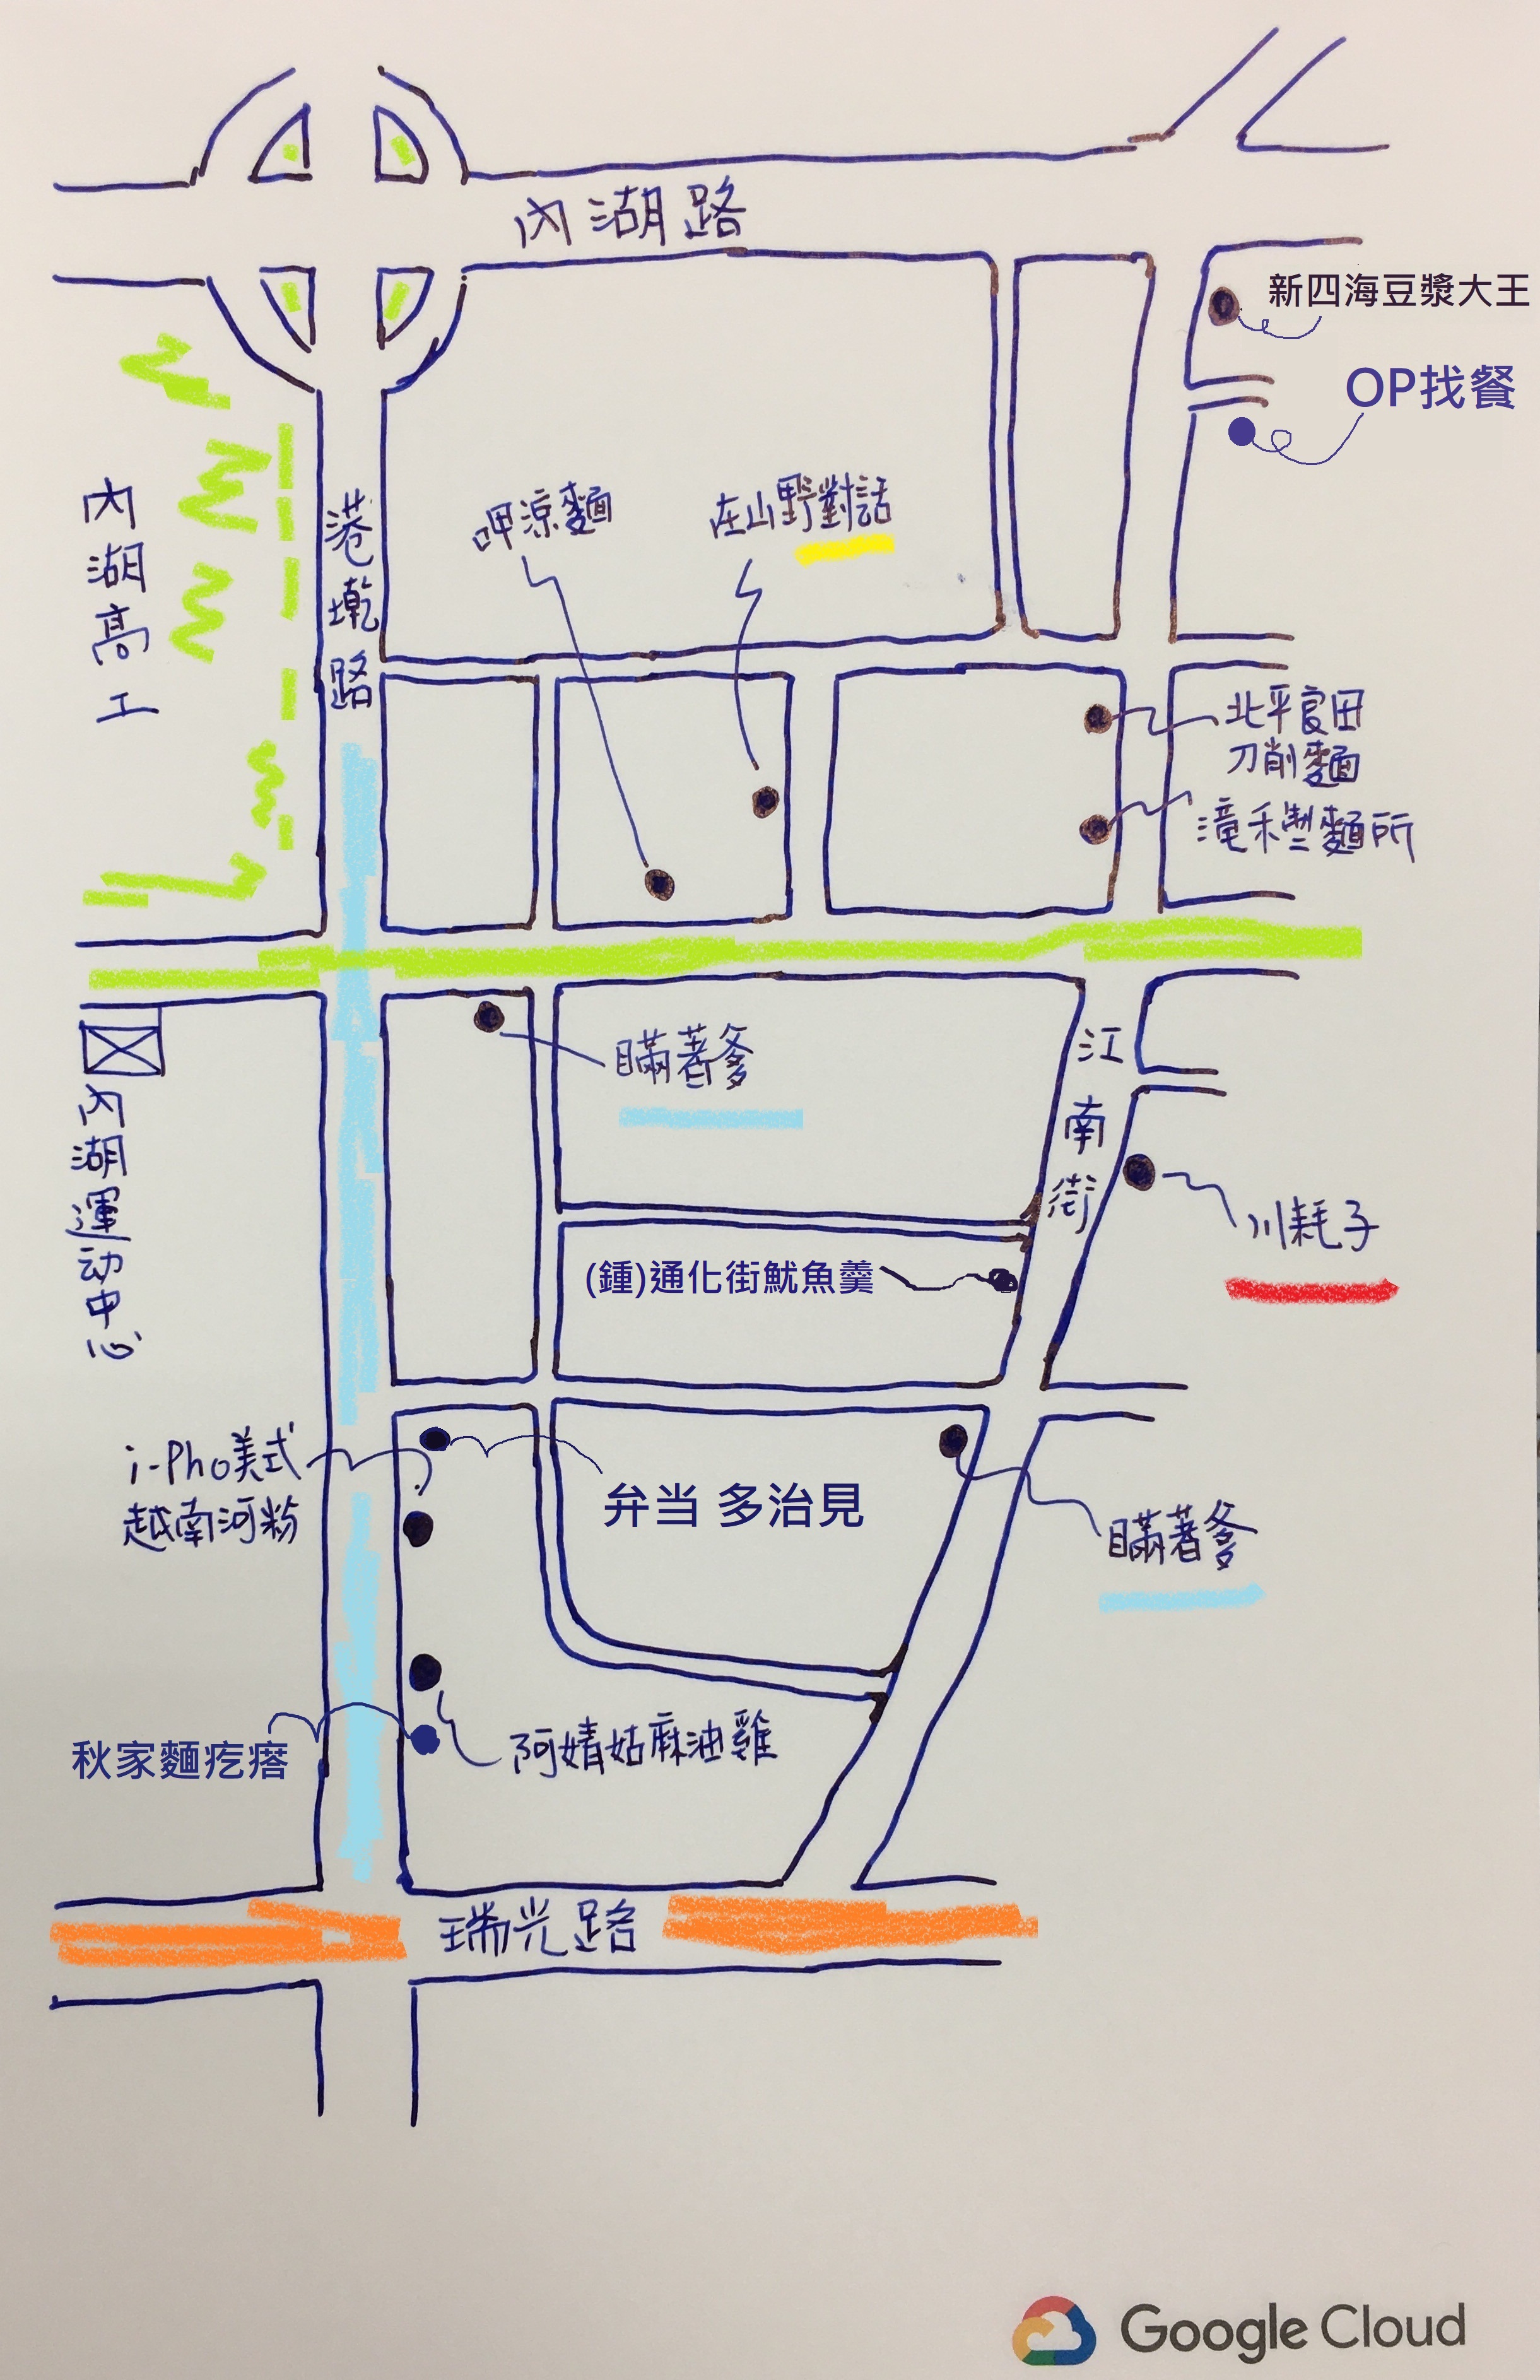 內湖路
新四海豆漿大王
OP找餐
內湖高工
港墘路
呷涼麵
在山野對話
北平官田
刀削麵
滝禾製麵所
瞞著爹
江南街
內湖運动中心
川耗子
(鍾)通化街魷魚羹
i-Pho美式
越南河粉
弁当 多治見
瞞著爹
秋家麵疙瘩
阿婧姑麻油雞
瑞光路
Google Cloud